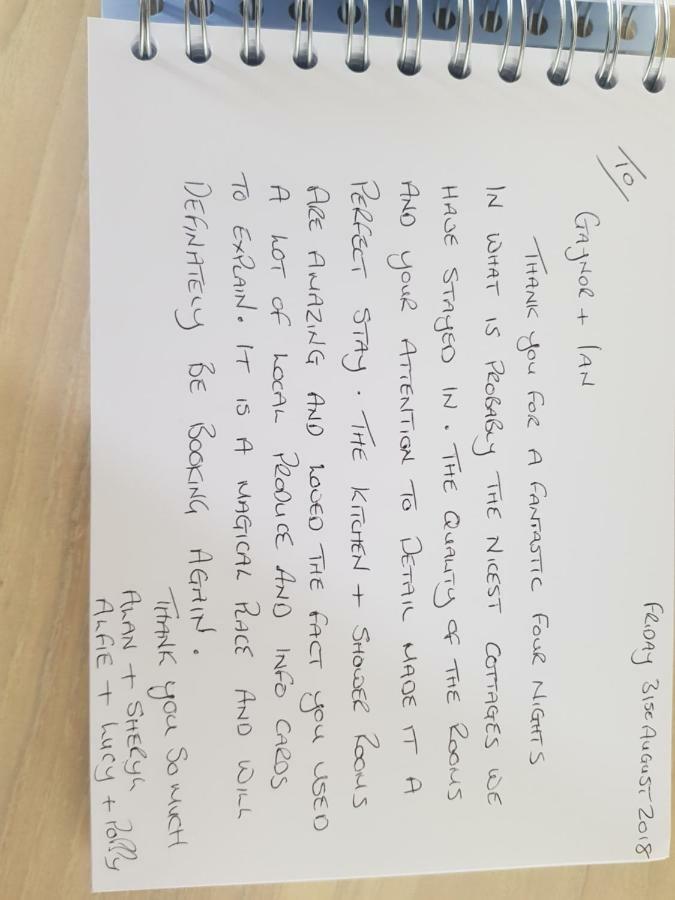 FRIDAY 31st AUGUST 2018
TO
GAYNOR + IAN
THANK YOU FOR A FANTASTIC FOUR NIGHTS
IN WHAT IS PROBABLY THE NICEST COTTAGES WE
HAVE STAYED IN. THE QUALITY OF THE ROOMS
AND YOUR ATTENTION TO DETAIL MADE IT A
PERFECT STAY. THE KITCHEN + SHOWER ROOMS
ARE AMAZING AND LOVED THE FACT YOU USED
A LOT OF LOCAL PRODUCE AND INFO CARDS
TO EXPLAIN. IT IS A MAGICAL PLACE AND WILL
DEFINATELY BE BOOKING AGAIN.
THANK YOU SO MUCH
ALAN + SHERYL
ALFIE + LUCY + POLLY